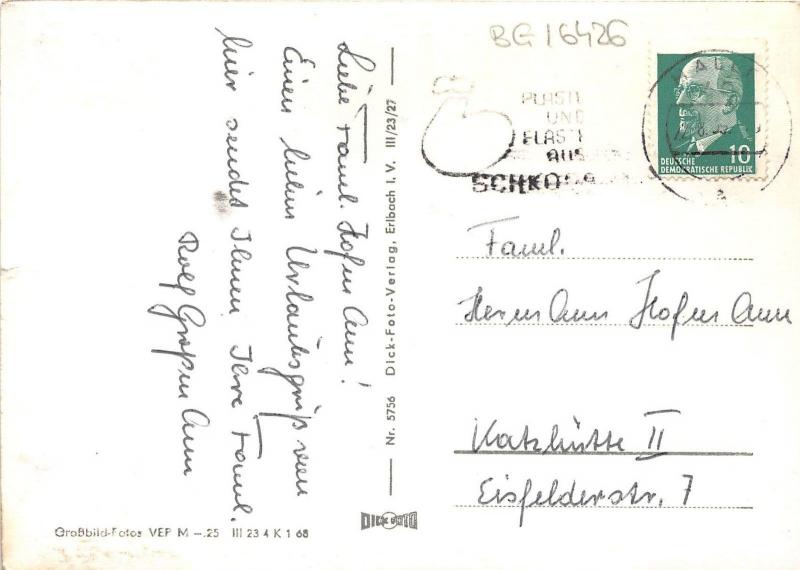 BG 16426
PLASTE
UND
ELASTE
AUS
SCHKOPA
10
DEUTSCHE
DEMOKRATISCHE REPUBLIK
Liebe Faml. Hofmann!
Einen lieben Urlaubsgruß von
hier sendet Ihnen Ihre Faml.
Rolf Großmann
Nr. 5756 Dick-Foto-Verlag, Erlbach i. V. III/23/27
Faml.
Hermann Hofmann
Katzhütte II
Eisfelderstr. 7
DICK FOTO
Großbild-Fotos VEP M —.25 III 23 4 K 1 68